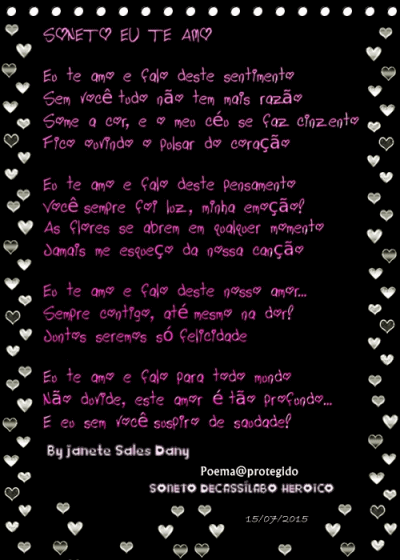 SONETO EU TE AMO
Eu te amo e falo deste sentimento
Sem você tudo não tem mais razão
Some a cor, e o meu céu se faz cinzento
Fico ouvindo o pulsar do coração
Eu te amo e falo deste pensamento
Você sempre foi luz, minha emoção!
As flores se abrem em qualquer momento
Jamais me esqueço da nossa canção
Eu te amo e falo deste nosso amor...
Sempre contigo, até mesmo na dor!
Juntos seremos só felicidade
Eu te amo e falo para todo mundo
Não duvide, este amor é tão profundo...
E eu sem você suspiro de saudade!
By Janete Sales Dany
Poema@protegido
SONETO DECASSÍLABO HEROICO
15/07/2015